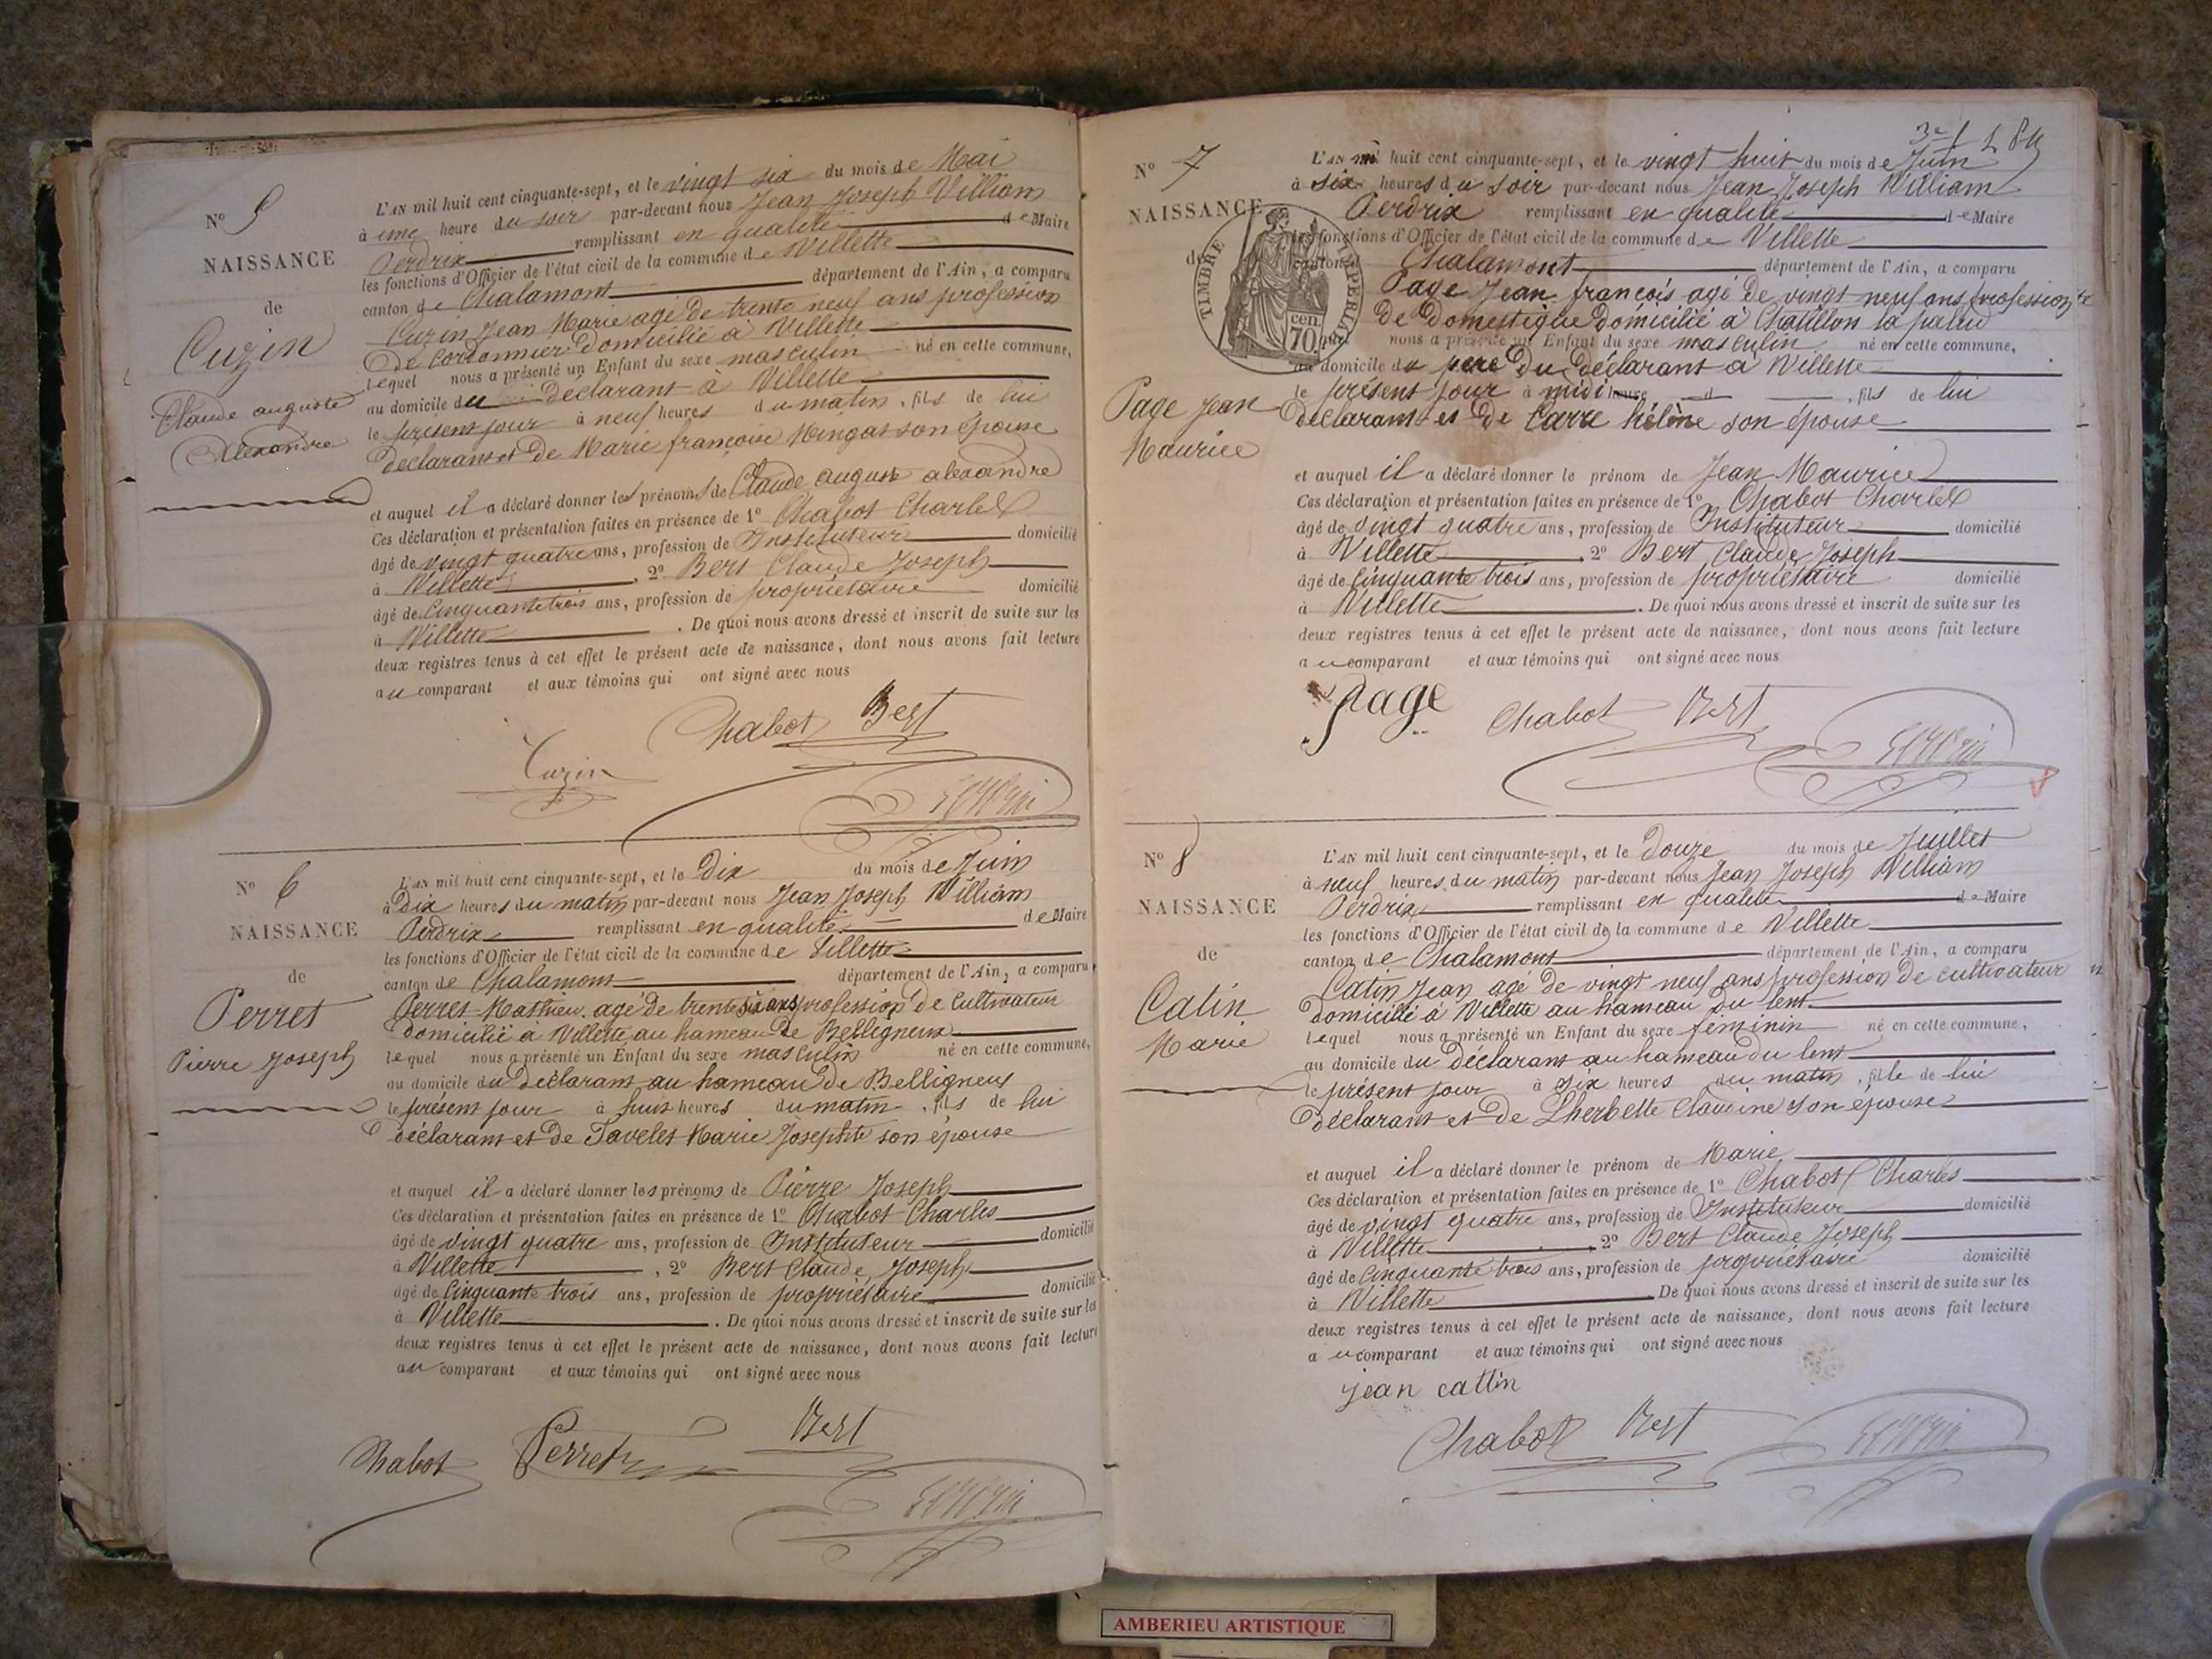 N° 5
NAISSANCE
de
Cuzin
Claude auguste
Alexandre
L'AN mil huit cent cinquante-sept, et le vingt six du mois de Mai
à une heure du soir par-devant nous Jean Joseph William
Perdrix remplissant en qualité de Maire
les fonctions d'Officier de l'état civil de la commune de Villette
canton de Chalamont département de l'Ain, a comparu
Cuzin Jean Marie agé de trente neuf ans profession
de cordonnier domicilié à Villette
lequel nous a présenté un Enfant du sexe masculin né en cette commune,
au domicile du déclarant à Villette
le présent jour à neuf heures du matin, fils de lui
déclarant et de Marie françoise Mingat son épouse
et auquel il a déclaré donner les prénoms de Claude auguste alexandre
Ces déclaration et présentation faites en présence de 1° Chabot Charles
âgé de vingt quatre ans, profession de Instituteur domicilié
à Villette, 2° Bert Claude Joseph
âgé de Cinquante trois ans, profession de propriétaire domicilié
à Villette. De quoi nous avons dressé et inscrit de suite sur les
deux registres tenus à cet effet le présent acte de naissance, dont nous avons fait lecture
au comparant et aux témoins qui ont signé avec nous
Chabot Bert
Cuzin
N° 6
NAISSANCE
de
Perret
Pierre Joseph
L'AN mil huit cent cinquante-sept, et le Dix du mois de Juin
à Dix heures du matin par-devant nous Jean Joseph William
Perdrix remplissant en qualité de Maire
les fonctions d'Officier de l'état civil de la commune de Villette
canton de Chalamont département de l'Ain, a comparu
Perret Mathieu agé de trente six ans profession de Cultivateur
domicilié à Villette au hameau de Belligneux
lequel nous a présenté un Enfant du sexe masculin né en cette commune,
au domicile du déclarant au hameau de Belligneux
le présent jour à huit heures du matin, fils de lui
déclarant et de Tavelet Marie Josephte son épouse
et auquel il a déclaré donner les prénoms de Pierre Joseph
Ces déclaration et présentation faites en présence de 1° Chabot Charles
âgé de vingt quatre ans, profession de Instituteur domicilié
à Villette, 2° Bert Claude Joseph
âgé de Cinquante trois ans, profession de propriétaire domicilié
à Villette. De quoi nous avons dressé et inscrit de suite sur les
deux registres tenus à cet effet le présent acte de naissance, dont nous avons fait lecture
au comparant et aux témoins qui ont signé avec nous
Chabot Perret Bert
N° 7
NAISSANCE
de
TIMBRE IMPERIAL
70 cen
Page Jean
Maurice
L'AN mil huit cent cinquante-sept, et le vingt huit du mois de Juin
à six heures du soir par-devant nous Jean Joseph William
Perdrix remplissant en qualité de Maire
les fonctions d'Officier de l'état civil de la commune de Villette
canton Chalamont département de l'Ain, a comparu
Page Jean françois agé de vingt neuf ans profession
de Domestique Domicilié à Chatillon la palud
nous a présenté un Enfant du sexe masculin né en cette commune,
au domicile du père du déclarant à Villette
le présent jour à midi heure d , fils de lui
déclarant et de Carre hélène son épouse
et auquel il a déclaré donner le prénom de Jean Maurice
Ces déclaration et présentation faites en présence de 1° Chabot Charles
âgé de vingt quatre ans, profession de Instituteur domicilié
à Villette, 2° Bert Claude Joseph
âgé de Cinquante trois ans, profession de propriétaire domicilié
à Villette. De quoi nous avons dressé et inscrit de suite sur les
deux registres tenus à cet effet le présent acte de naissance, dont nous avons fait lecture
au comparant et aux témoins qui ont signé avec nous
page Chabot Bert
N° 8
NAISSANCE
de
Catin
Marie
L'AN mil huit cent cinquante-sept, et le Douze du mois de Juillet
à neuf heures du matin par-devant nous Jean Joseph William
Perdrix remplissant en qualité de Maire
les fonctions d'Officier de l'état civil de la commune de Villette
canton de Chalamont département de l'Ain, a comparu
Catin Jean agé de vingt neuf ans profession de cultivateur
domicilié à Villette au hameau du lent
lequel nous a présenté un Enfant du sexe féminin né en cette commune,
au domicile du déclarant au hameau du lent
le présent jour à six heures du matin, fille de lui
déclarant et de Lherbette Claudine son épouse
et auquel il a déclaré donner le prénom de Marie
Ces déclaration et présentation faites en présence de 1° Chabot Charles
âgé de vingt quatre ans, profession de Instituteur domicilié
à Villette, 2° Bert Claude Joseph
âgé de Cinquante trois ans, profession de propriétaire domicilié
à Villette. De quoi nous avons dressé et inscrit de suite sur les
deux registres tenus à cet effet le présent acte de naissance, dont nous avons fait lecture
au comparant et aux témoins qui ont signé avec nous
jean cattin
Chabot Bert
AMBERIEU ARTISTIQUE